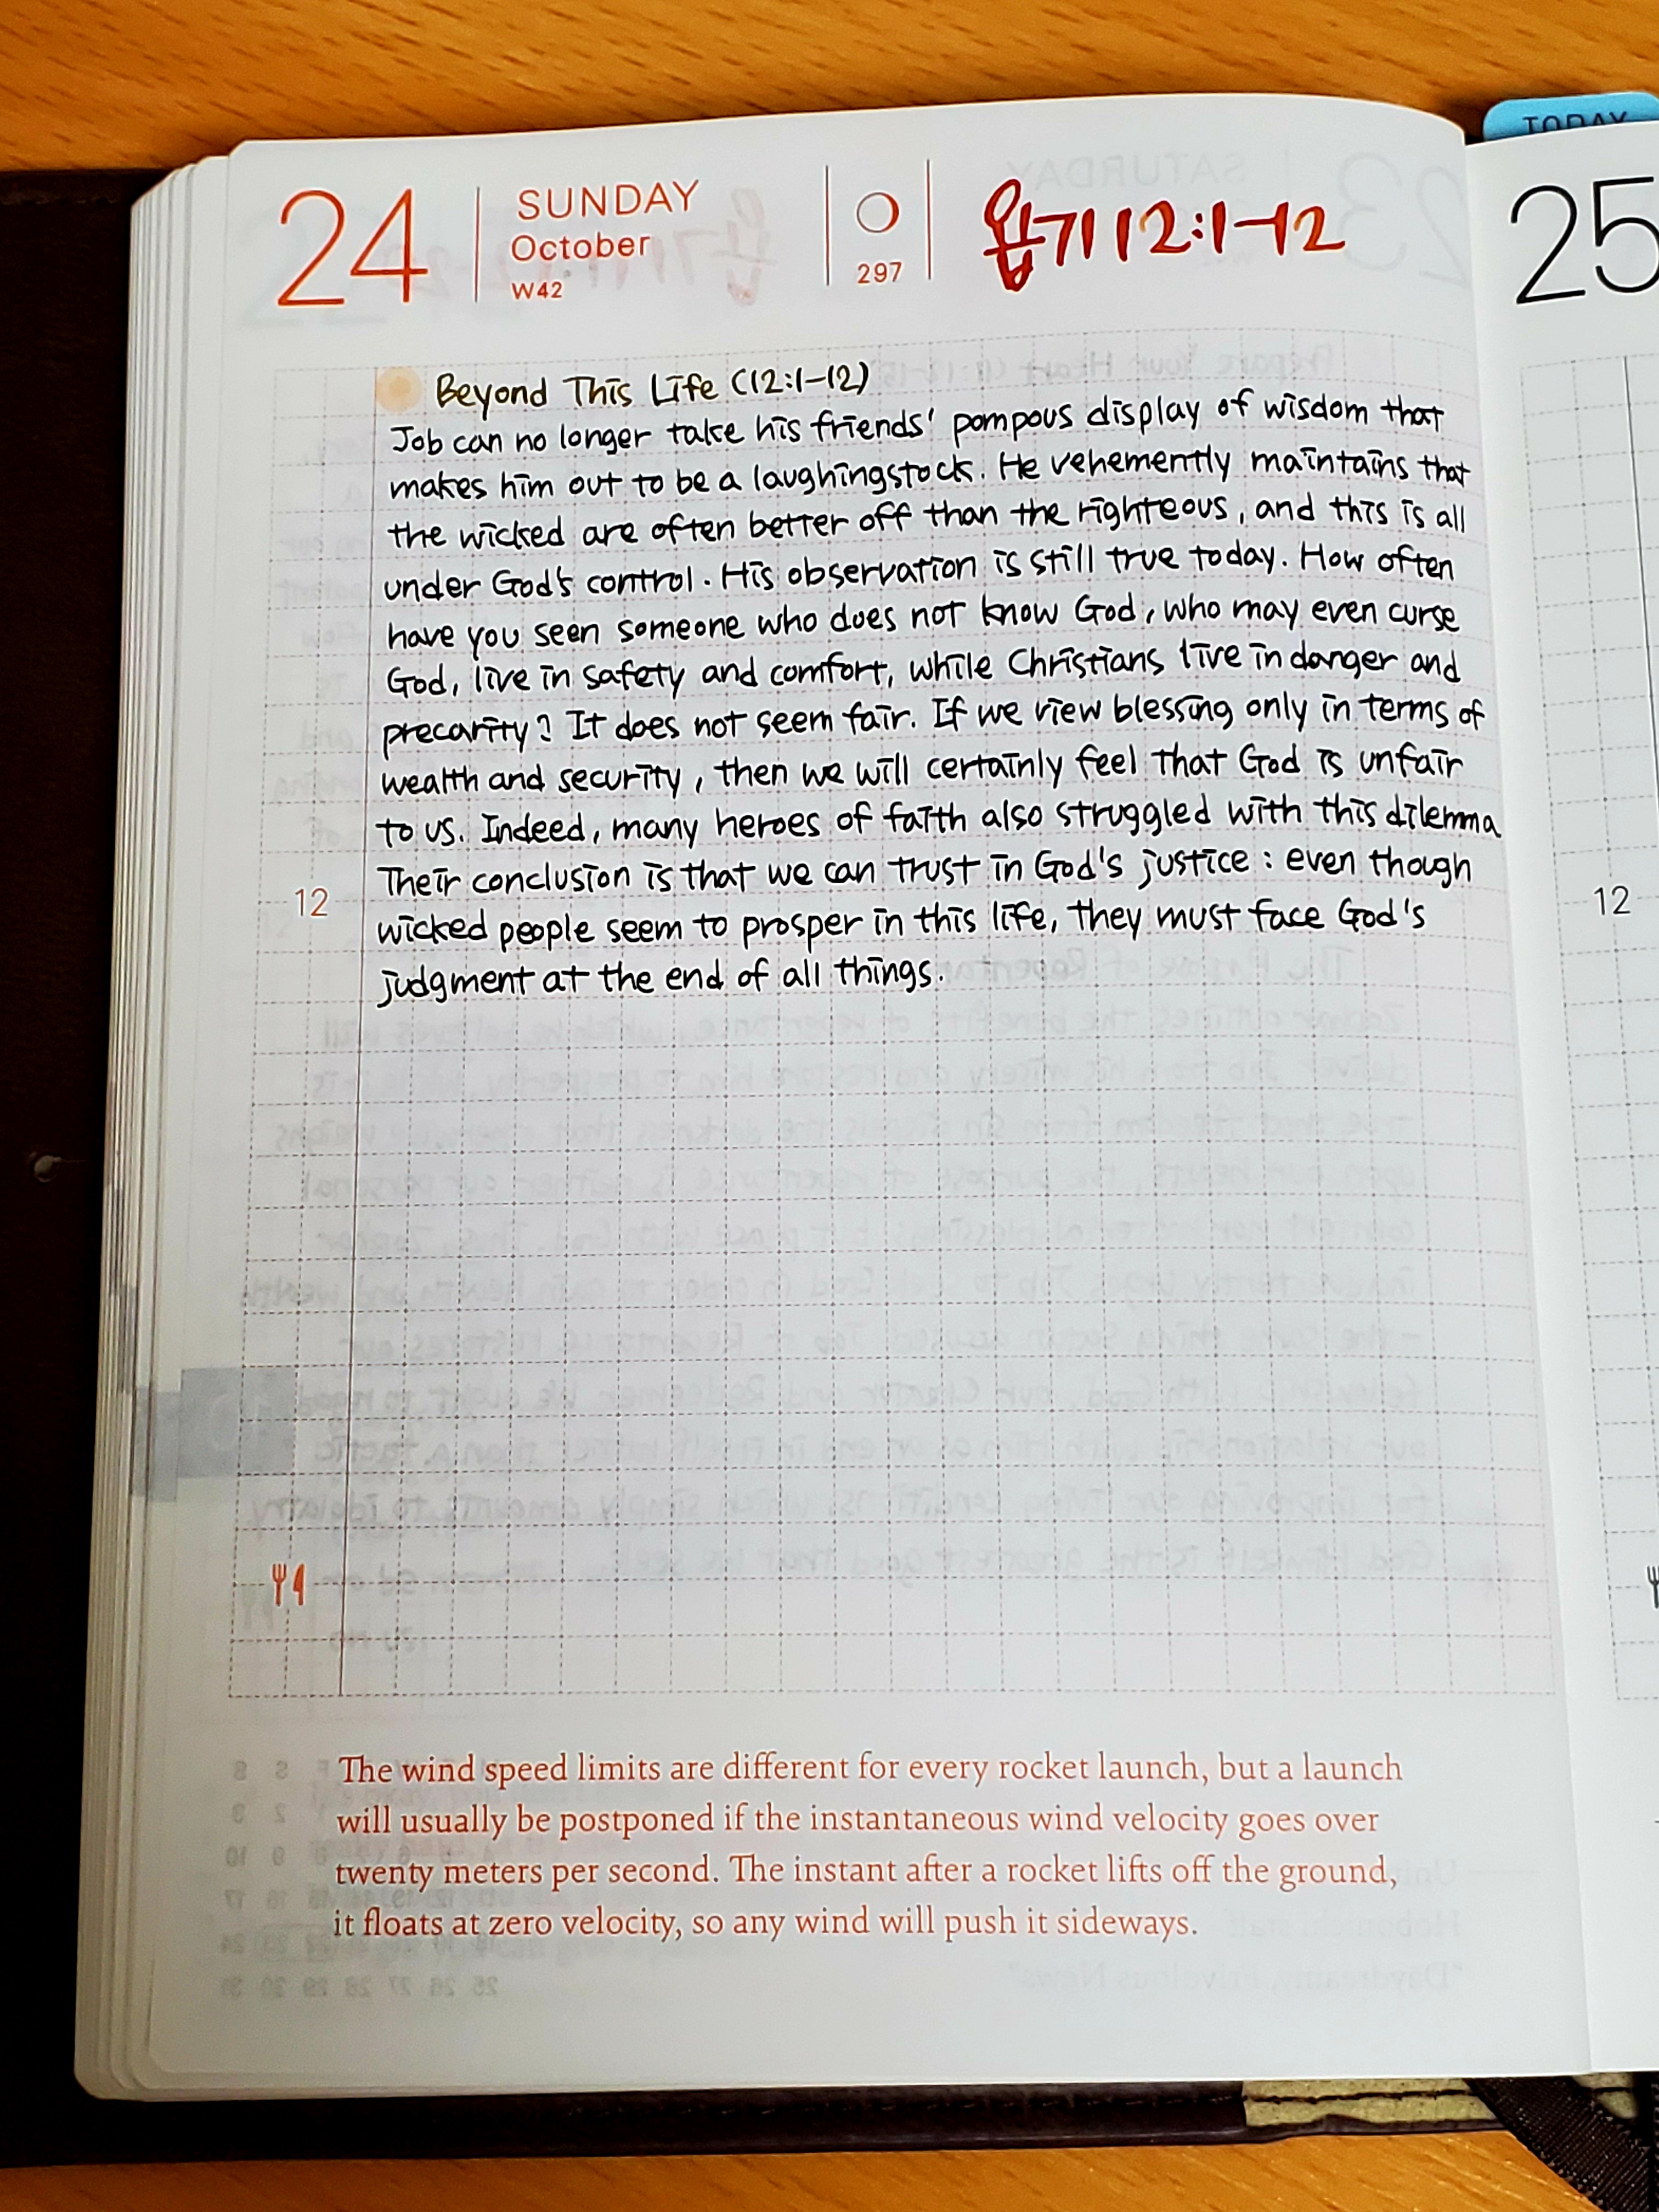 TODAY
24
SUNDAY
October
W42
297
욥기 12:1-12
25
Beyond This Life (12:1-12)
Job can no longer take his friends' pompous display of wisdom that
makes him out to be a laughingstock. He vehemently maintains that
the wicked are often better off than the righteous, and this is all
under God's control. His observation is still true today. How often
have you seen someone who does not know God, who may even curse
God, live in safety and comfort, while Christians live in danger and
precarity? It does not seem fair. If we view blessing only in terms of
wealth and security, then we will certainly feel that God is unfair
to us. Indeed, many heroes of faith also struggled with this dilemma
Their conclusion is that we can trust in God's justice: even though
12
wicked people seem to prosper in this life, they must face God's
judgment at the end of all things.
12
The wind speed limits are different for every rocket launch, but a launch
will usually be postponed if the instantaneous wind velocity goes over
twenty meters per second. The instant after a rocket lifts off the ground,
it floats at zero velocity, so any wind will push it sideways.